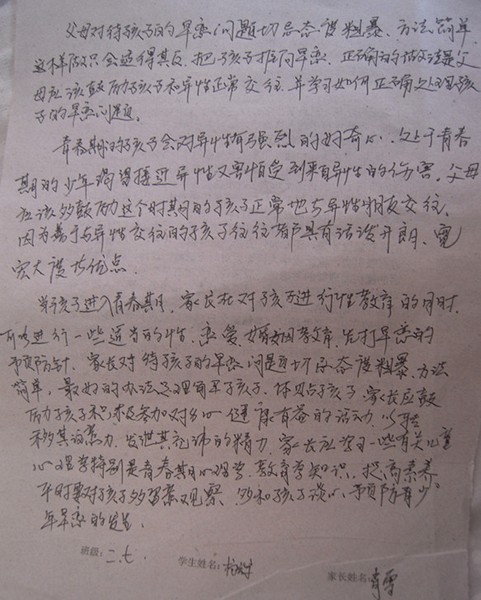 父母对待孩子的早恋问题切忌态度粗暴、方法简单,
这样做只会适得其反,把孩子推向早恋。正确的做法是父
母应该鼓励孩子和异性正常交往,并学习如何正确处理孩
子的早恋问题。
青春期的孩子会对异性有强烈的好奇心,处于青春
期的少年渴望接近异性又害怕受到来自异性的伤害。父母
应该多鼓励这个时期的孩子正常地与异性朋友交往,
因为善于与异性交往的孩子往往都具有活泼开朗、宽
宏大度等优点。
当孩子进入青春期,家长在对孩子进行性教育的同时,
可以进行一些适当的性、恋爱、婚姻教育,先打早恋的
预防针。家长对待孩子的早恋问题要切忌态度粗暴、方法
简单,最好的办法是理解孩子,体贴孩子。家长应鼓
励孩子积极参加对身心健康有益的活动,以转
移其注意力,发泄其充沛的精力。家长应学习一些有关儿童
心理学特别是青春期心理学、教育学知识,提高素养
平时要对孩子多留意观察,多和孩子谈心,预防青少
年早恋的发生。
班级:二.七. 学生姓名: 家长姓名: